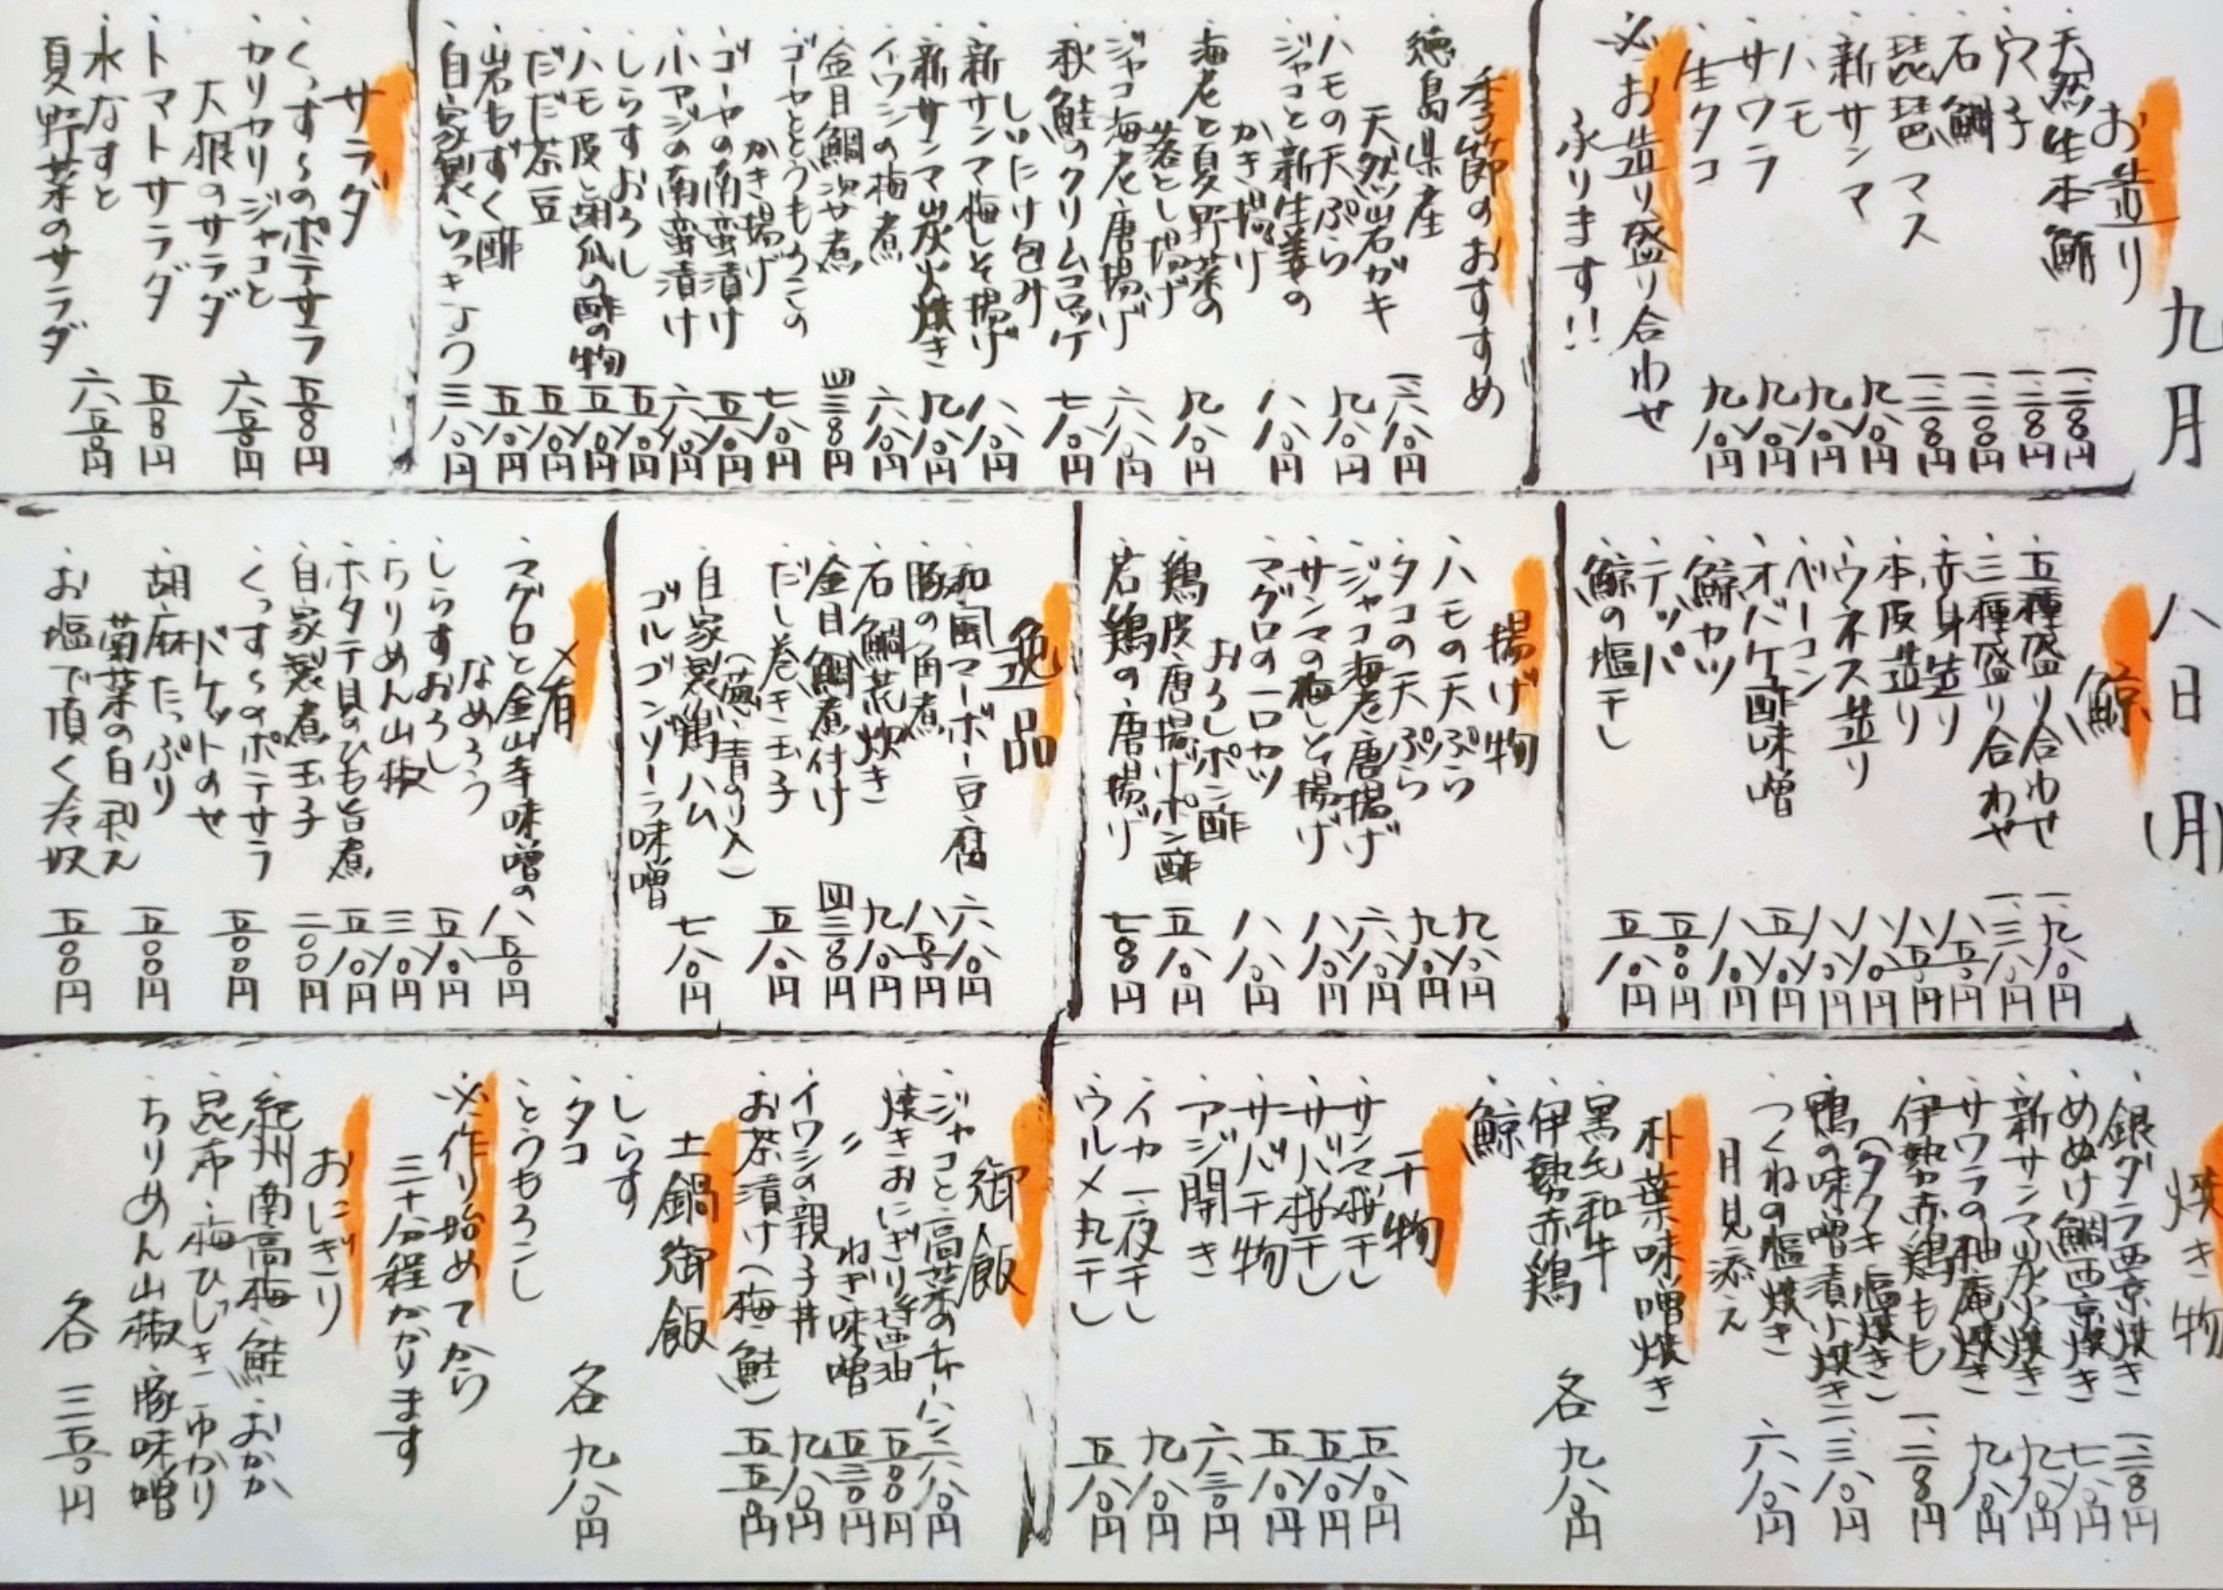 九月 八日(月)
お造り
・天然生本鮪 一、二八〇円
・穴子 一、二八〇円
・石鯛 一、二〇〇円
・琵琶マス 一、二八〇円
・新サンマ 九八〇円
・ハモ 九八〇円
・サワラ 九八〇円
・生タコ 九八〇円
※お造り盛り合わせ
承ります!!
季節のおすすめ
・徳島県産
天然岩ガキ 一、六八〇円
・ハモの天ぷら 九八〇円
・ジャコと新生姜の
かき揚げ 八八〇円
・海老と夏野菜の
落とし揚げ 九八〇円
・ジャコ海老唐揚げ 六八〇円
・秋鮭のクリームコロッケ
しいたけ包み 七八〇円
・新サンマ梅しそ揚げ 八八〇円
・新サンマ炭火焼き 九八〇円
・イワシの梅煮 六八〇円
・金目鯛沢煮 四、三八〇円
・ゴーヤとうもろこしの
かき揚げ 七八〇円
・ゴーヤの南蛮漬け 五八〇円
・小アジの南蛮漬け 六八〇円
・しらすおろし 五八〇円
・ハモ皮と胡瓜の酢の物 五八〇円
・だだ茶豆 五八〇円
・岩もずく酢 五八〇円
・自家製らっきょう 三八〇円
サラダ
・くっす〜のポテサラ 五八〇円
・カリカリジャコと
大根のサラダ 六五〇円
・トマトサラダ 五八〇円
・水なすと
夏野菜のサラダ 六五〇円
鯨
・五種盛り合わせ 一、九八〇円
・三種盛り合わせ 一、三八〇円
・赤身造り 八五〇円
・本皮造り 八五〇円
・ウネス造り 八八〇円
・ベーコン 八八〇円
・オバケ酢味噌 五八〇円
・鯨カツ 八八〇円
・テッパ 五八〇円
・鯨の塩干し 五八〇円
揚げ物
・ハモの天ぷら 九八〇円
・タコの天ぷら 九八〇円
・ジャコ海老唐揚げ 六八〇円
・サンマの梅しそ揚げ 八八〇円
・マグロの一口カツ
おろしポン酢 八八〇円
・鶏皮唐揚げポン酢 五八〇円
・若鶏の唐揚げ 七八〇円
逸品
・和風マーボー豆腐 六八〇円
・豚の角煮 八五〇円
・石鯛荒炊き 九八〇円
・金目鯛煮付け 四、三八〇円
・だし巻き玉子
(葱、青のり入) 五八〇円
・自家製鶏ハム
ゴルゴンゾーラ味噌 七八〇円
〆肴
・マグロと金山寺味噌の
なめろう 八五〇円
・しらすおろし 五八〇円
・ちりめん山椒 三八〇円
・ホタテ貝のひも旨煮 五八〇円
・自家製煮玉子 二〇〇円
・くっす〜のポテサラ
バケットのせ 五〇〇円
・胡麻たっぷり
菊菜の白和え 五〇〇円
・お塩で頂く冷奴 五〇〇円
焼き物
・銀ダラ西京焼き 一、二八〇円
・めぬけ鯛西京焼き 七八〇円
・新サンマ炭火焼き 九八〇円
・サワラの柚庵焼き 九八〇円
・伊勢赤鶏もも
(タタキ・塩焼き) 一、二八〇円
・鴨の味噌漬け焼き 二、三八〇円
・つくねの塩焼き
月見添え 六八〇円
朴葉味噌焼き
・黒毛和牛
・伊勢赤鶏
・鯨 各九八〇円
干物
・サンマ桜干し 五八〇円
・サバ桜干し 五八〇円
・サバ干物 五八〇円
・アジ開き 六三〇円
・イカ一夜干し 九八〇円
・ウルメ丸干し 五八〇円
御飯
・ジャコと高菜のチャーハン 六八〇円
・焼きおにぎり 醤油 五〇〇円
〃 ねぎ味噌 五三〇円
・イワシの親子丼 九八〇円
・お茶漬け(梅・鮭) 五五〇円
土鍋御飯
・しらす
・タコ
・とうもろこし 各九八〇円
※作り始めてから
三十分程かかります
おにぎり
・紀州南高梅・鮭・おかか
・昆布・梅ひじき・ゆかり
・ちりめん山椒・豚味噌
各 三五〇円